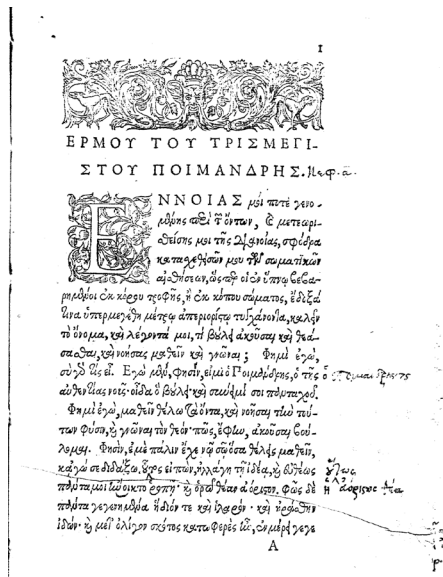 1
ΕΡΜΟΥ ΤΟΥ ΤΡΙΣΜΕΓΙ-
ΣΤΟΥ ΠΟΙΜΑΝΔΡΗΣ. Κεφ. α.
ΕΝΝΟΙΑΣ μοί ποτε γενο-
μένης περὶ τῶν ὄντων, καὶ μετεωρι-
σθείσης μοι τῆς διανοίας, σφόδρα
κατασχεθησῶν μου τῶν σωματικῶν
αἰσθήσεων, ὥσπερ οἱ ἐν ὕπνῳ βεβα-
ρημένοι ἐκ κόρου τροφῆς, ἢ ἐκ κόπου σώματος, ἔδοξά
τινα ὑπερμεγέθη μέτρῳ ἀπεριορίστῳ τυγχάνοντα, καλεῖν
τὸ ὄνομα, καὶ λέγοντά μοι, τί βούλει ἀκοῦσαι καὶ θεά-
σασθαι, καὶ νοήσας μαθεῖν καὶ γνῶναι; Φημὶ ἐγὼ,
σὺ γὰρ τίς εἶ; Ἐγὼ μὲν, φησὶν, εἰμὶ ὁ Ποιμάνδρης, ὁ τῆς
αὐθεντίας νοῦς· οἶδα ὃ βούλει· καὶ σύνειμί σοι πανταχοῦ.
Φημὶ ἐγὼ, μαθεῖν θέλω τὰ ὄντα, καὶ νοῆσαι τὴν τού-
των φύσιν, καὶ γνῶναι τὸν θεόν· πῶς, ἔφην, ἀκοῦσαι βού-
λομαι. Φησὶν, ἐμὲ πάλιν ἔχε νῷ σῷ ὅσα θέλεις μαθεῖν,
κἀγώ σε διδάξω. οὕτως εἰπὼν, ἠλλάγη τῇ ἰδέᾳ, καὶ εὐθέως οὕτως
πάντα μοι ἤνοικτο ῥοπῇ· καὶ ὁρῶ θέαν ἀόριστον. φῶς δὲ ἀόριστος θέα
πάντα γεγενημένα ἡδύν τε καὶ ἱλαρόν· καὶ ἠράσθην
ἰδών· καὶ μετ' ὀλίγον σκότος κατωφερὲς ἦν, ἐν μέρει γεγε
Α